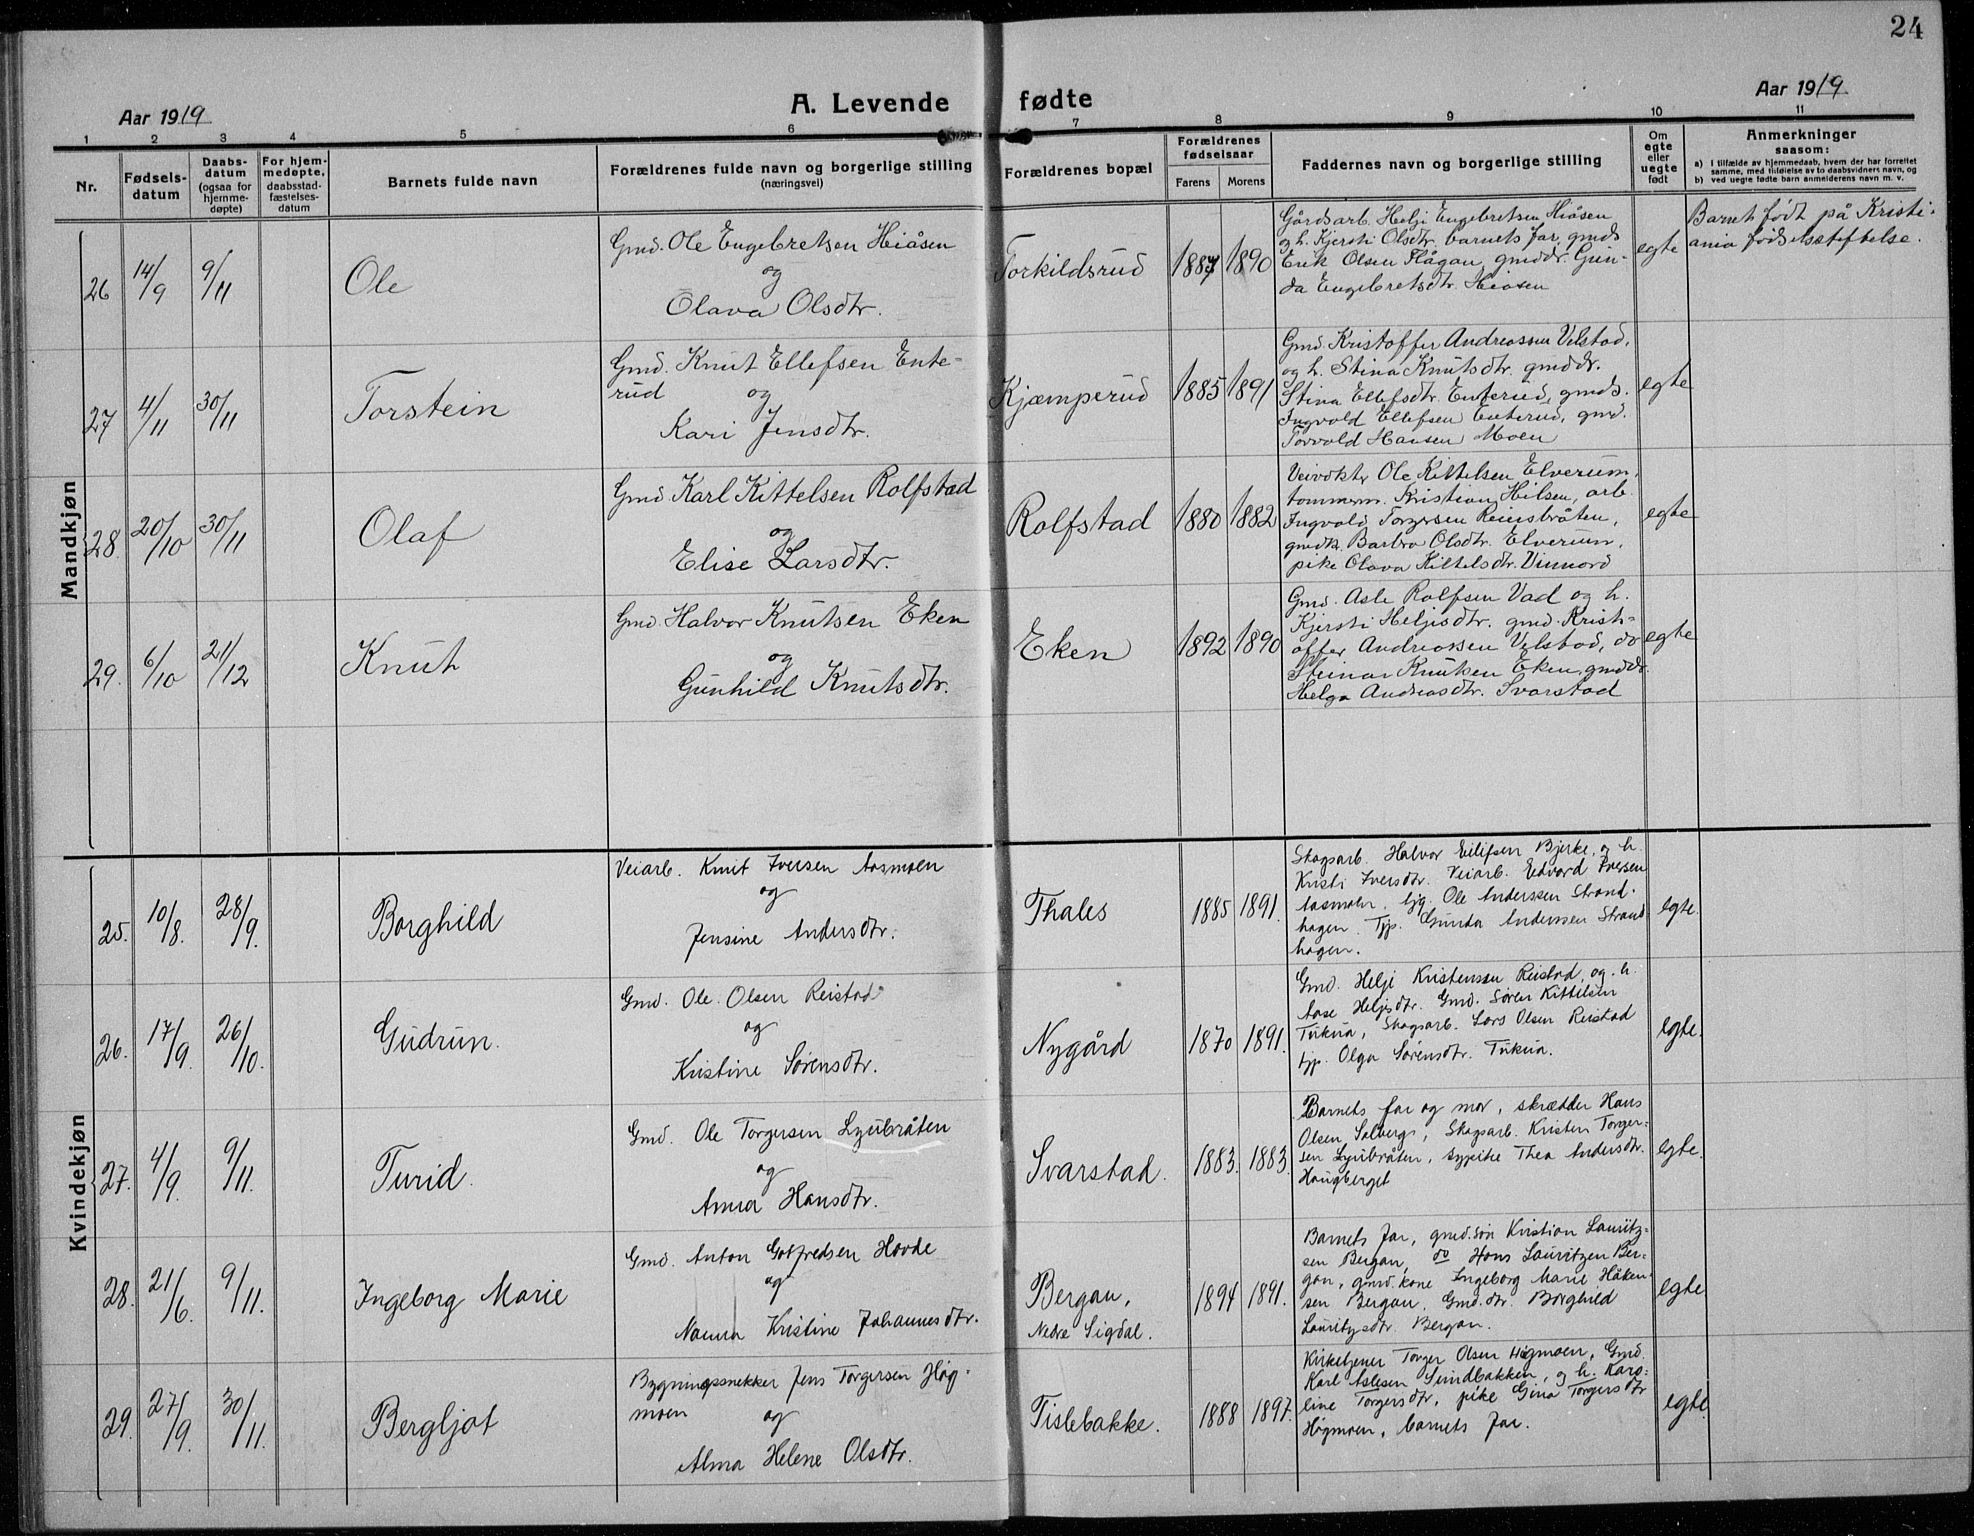 24
Aar 1919
A. Levende fødte
Aar 1919
1 2 3 4 5 6 7 8 9 10 11
Nr.
Fødsels-
datum
Daabs-
datum
(ogsaa for
hjemme-
døpte)
For hjem-
medøpte,
daabsstad-
fæstelses-
datum
Barnets fulde navn
Forældrenes fulde navn og borgerlige stilling
(næringsvei)
Forældrenes bopæl
Forældrenes
fødselsaar
Farens Morens
Faddernes navn og borgerlige stilling
Om
egte
eller
uegte
født
Anmerkninger
saasom:
a) I tilfælde av hjemmedaab, hvem der har forrettet
samme, med tilføielse av to daabsvidners navn, og
b) ved uegte fødte barn anmelderens navn m. v.
Mandkjøn
26 14/9 9/11 Ole
Gmd. Ole Engebretsen Hiåsen
og
Olava Olsdtr.
Torkildsrud 1887 1890
Gårdsarb. Helji Engebretsen Hiåsen
og h. Kjersti Olsdtr. barnets far, gmds
Erik Olsen Flågan, gmddr. Gun-
da Engebretsdtr. Hiåsen
egte
Barnet født på Kristi-
ania fødselsstiftelse.
27 4/11 30/11 Torstein
Gmd. Knut Ellefsen Ente-
rud og
Kari Jensdtr.
Kjæmperud 1885 1891
Gmd Kristoffer Andreassen Velstad,
og h. Stina Knutsdtr. gmddr.
Stina Ellefsdtr. Enterud, gmds.
Ingvold Ellefsen Enterud, gmd.
Torvold Hansen Moen
egte
28. 20/10 30/11 Olaf
Gmd Karl Kittelsen Rolfstad
og
Elise Larsdtr.
Rolfstad 1880 1882
Veivokter Ole Kittelsen Elverum,
tømmerm. Kristian Hilsen, arb.
Ingvald Torgersen Reinsbråten,
gmdk. Barbro Olsdtr. Elverum,
pike Olava Kittelsdtr. Vinnord
egte
29. 6/10 21/12 Knut
Gmd. Halvor Knutsen Eken
og
Gunhild Knutsdtr.
Eken 1892 1890
Gmd. Asle Rolfsen Vad og h.
Kjersti Heljisdtr. gmd. Krist-
offer Andreassen Velstad, do
Steinar Knutsen Eken, gmddr.
Helga Andreasdtr. Svarstad
egte
Kvindekjøn
25. 10/8. 28/9. Borghild
Veiarb. Knut Iversen Aasmoen
og
Jensine Andersdtr.
Thales 1885 1891.
Skogsarb. Halvor Eilifsen Bjerke, og h.
Kristi Iversdtr. Veiarb. Edvard Iversen
Aasmoen. Ljg. Ole Anderssen Strand-
hagen. Tjp. Gunda Anderssen Strand
hagen.
egte.
26. 17/9. 26/10. Gudrun.
Gmd. Ole Olsen Reistad
og
Kristine Sørensdtr.
Nygård 1870 1891.
Gmd. Helje Kristenssen Reistad, og h.
Aase Heljsdtr. Gmd. Søren Kittilsen
Tukua, Skogsarb. Lars Olsen Reistad
tjp. Olga Sørensdtr. Tukua.
egte.
27. 4/9. 9/11. Turid.
Gmd. Ole Torgersen Lyubråten
og
Anna Hansdtr.
Svarstad. 1883. 1883.
Barnets far og mor, skrædder Hans
Olsen Solberg, Skogsarb. Kristen Torger-
sen Lyubråten, sypike Thea Andersdtr.
Haugberget
egte.
28. 21/6. 9/11. Ingeborg Marie
Gmd. Anton Gotfredsen Hovde
og
Nanna Kristine Johannesdtr.
Bergan,
Nedre Sigdal. 1894 1891.
Barnets far, gmd.søn Kristian Lauritz-
sen Bergan, do Hans Lauritzen Ber-
gan, gmd.kone Ingeborg Marie Håken-
sen Bergan. Gmd.dtr. Borghild
Lauritzsdtr. Bergan.
egte
29. 27/9. 30/11. Bergljot
Bygningssnekker Jens Torgersen Høg-
moen og
Alma Helene Olsdtr.
Tislebakke. 1888 1897.
Kirketjener Torger Olsen Høgmoen, Gmd.
Karl Aslesen Sundbakken, og h. Karo-
line Torgersdtr, pike Gina Torgersdtr
Høgmoen, barnets far.
egte.